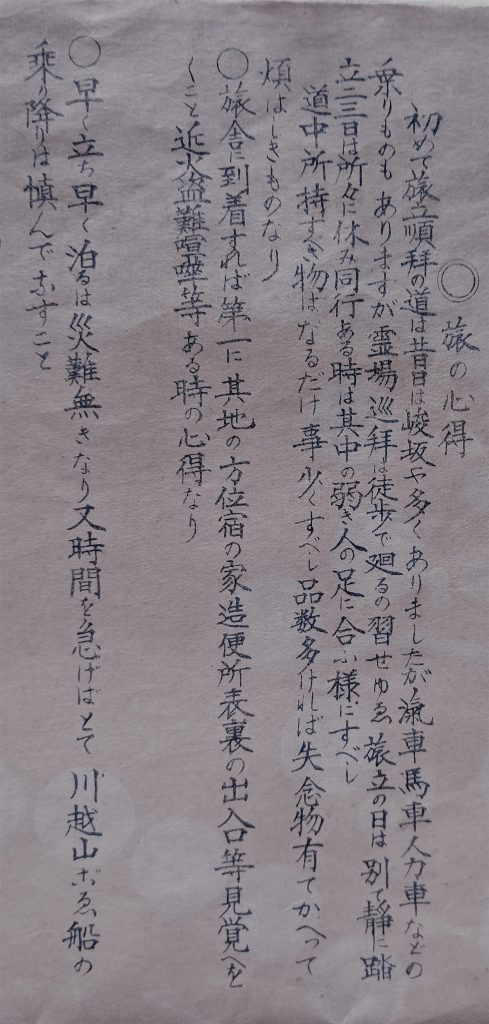 ◯ 旅の心得
初めて旅立順拝の道は昔日は峻坂や多くありましたが汽車馬車人力車などの
乗りものもありますが霊場巡拝は徒歩で廻るの習せゆゑ旅立の日は別て静に踏
立二三日は所々に休み同行ある時は其中の弱き人の足に合ふ様にすべし
道中所持すき物はなるだけ事少くすべし品数多ければ失念物有てかへって
煩はしきものなり
◯旅舎に到着すれば第一に其地の方位宿の家造便所表裏の出入口等見覚へを
くこと近火盗難喧嘩等ある時の心得なり
◯早く立ち早く泊るは災難無きなり又時間を急げばとて川越山ごゑ船の
乗り降りは慎んでなすこと